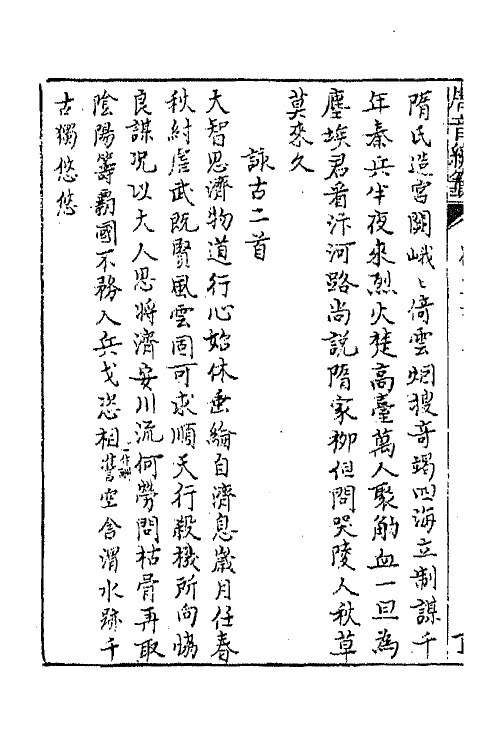 唐音統籤
隋氏造宮闕峨〻倚雲烟搜奇竭四海立制謀千
年秦兵半夜來烈火焚高臺萬人聚觔血一旦為
塵埃君看汴河路尚說隋家柳但問哭陵人秋草
莫來久
詠古二首
大智思濟物道行心始休垂綸自消息歲月任春
秋紂虐武既賢風雲固可求順天行殺機所向協
良謀況以大人思將濟安川流何勞問枯骨再取
陰陽籌霸國不務入兵戈恣相讐一作酬空令渭水跡千
古獨悠悠